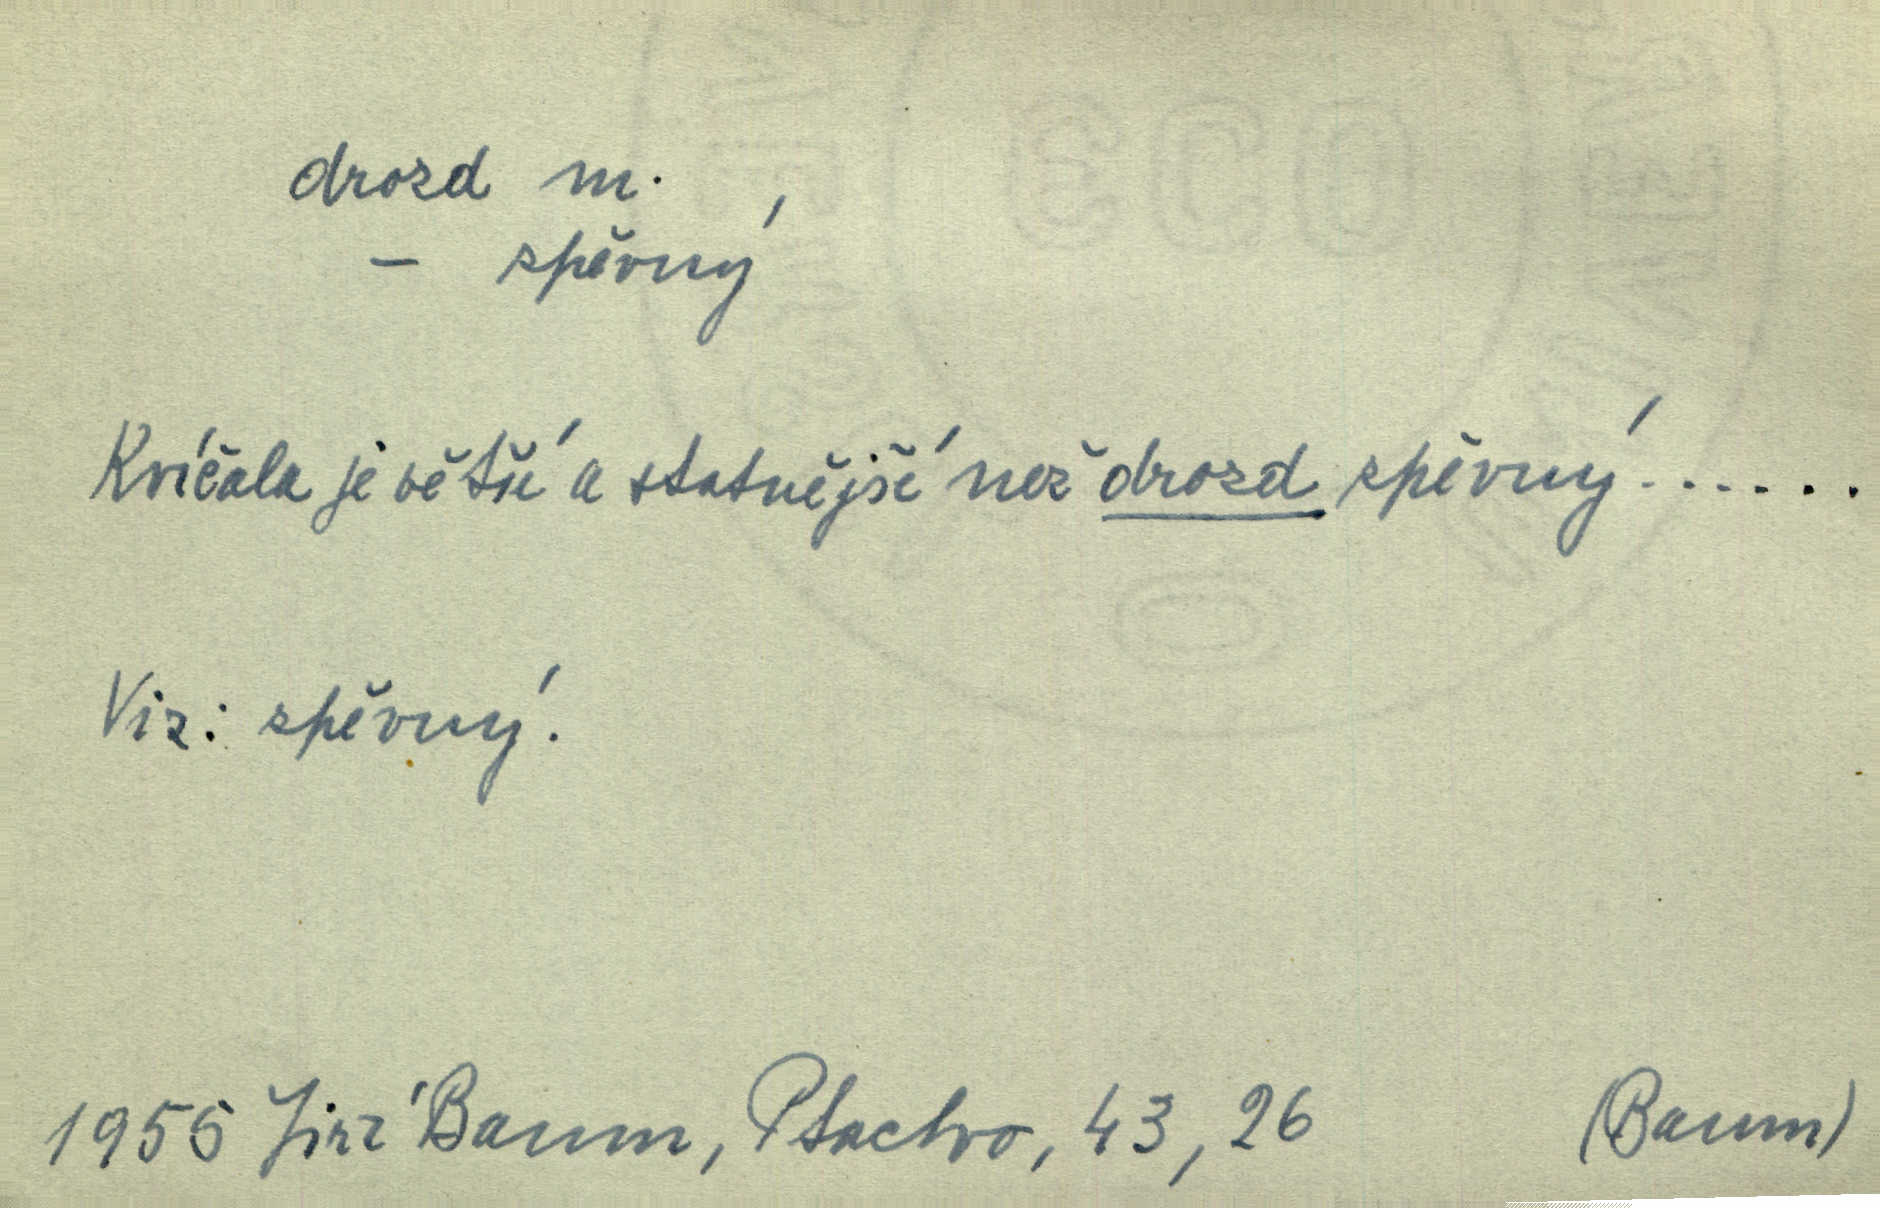 drozd m.
— spěvný
Kvíčala je větší a statnější než drozd spěvný.......
Viz: spěvný.
1955 Jiří Baum, Ptactvo, 43, 26 (Baum)